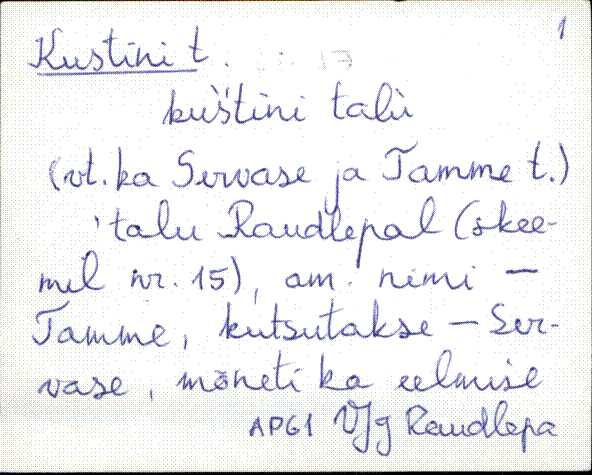 1
Kustini t.
kuštini talu
(vt. ka Servase ja Tamme t.)
'talu Raudlepal (skee-
mil nr. 15), am. nimi —
Tamme, kutsutakse — Ser-
vase, mõneti ka eelmise
AP61 VJg Raudlepa